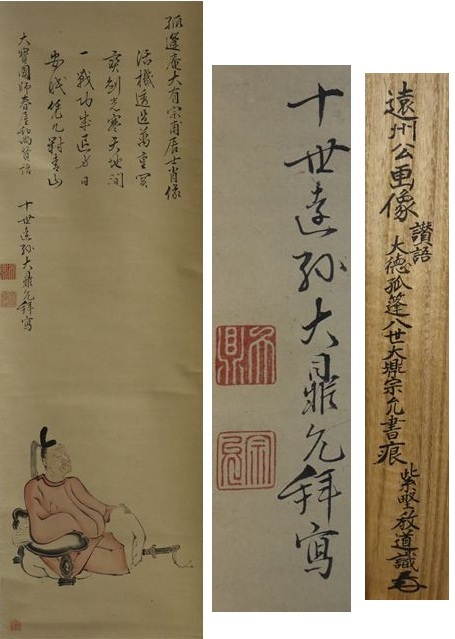 孤篷庵大有宗甫居士肖像
活機透過萬重関
寶剣光寒天地間
一戦功成 日
凭几對青山
大寶圓師春屋和尚賛語
十世遠孫大鼎允拜寫
十世遠孫大鼎允拜寫
遠州公画像
讃語
大徳孤篷八世大鼎宗允書痕
紫野教道識